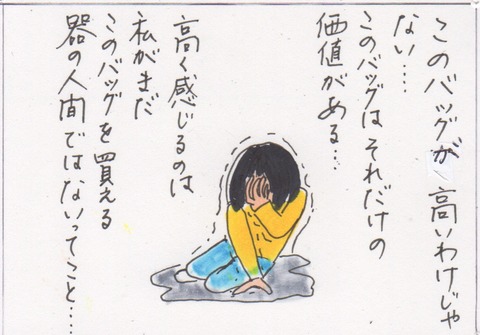 このバッグが高いわけじゃ
ない‥‥
このバッグはそれだけの
価値がある‥‥
高く感じるのは
私がまだ
このバッグを買える
器の人間ではないってこと‥‥